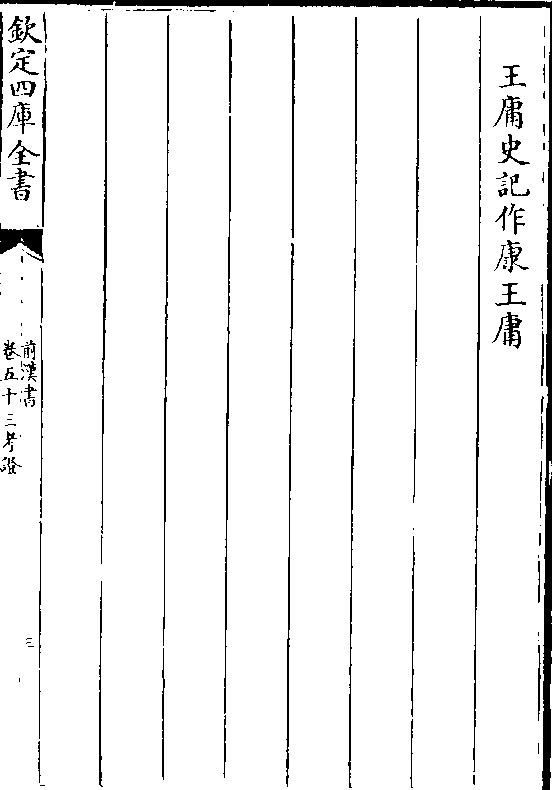 王庸史記作康王庸
欽定四庫全書
前漢書
卷五十三考證
三